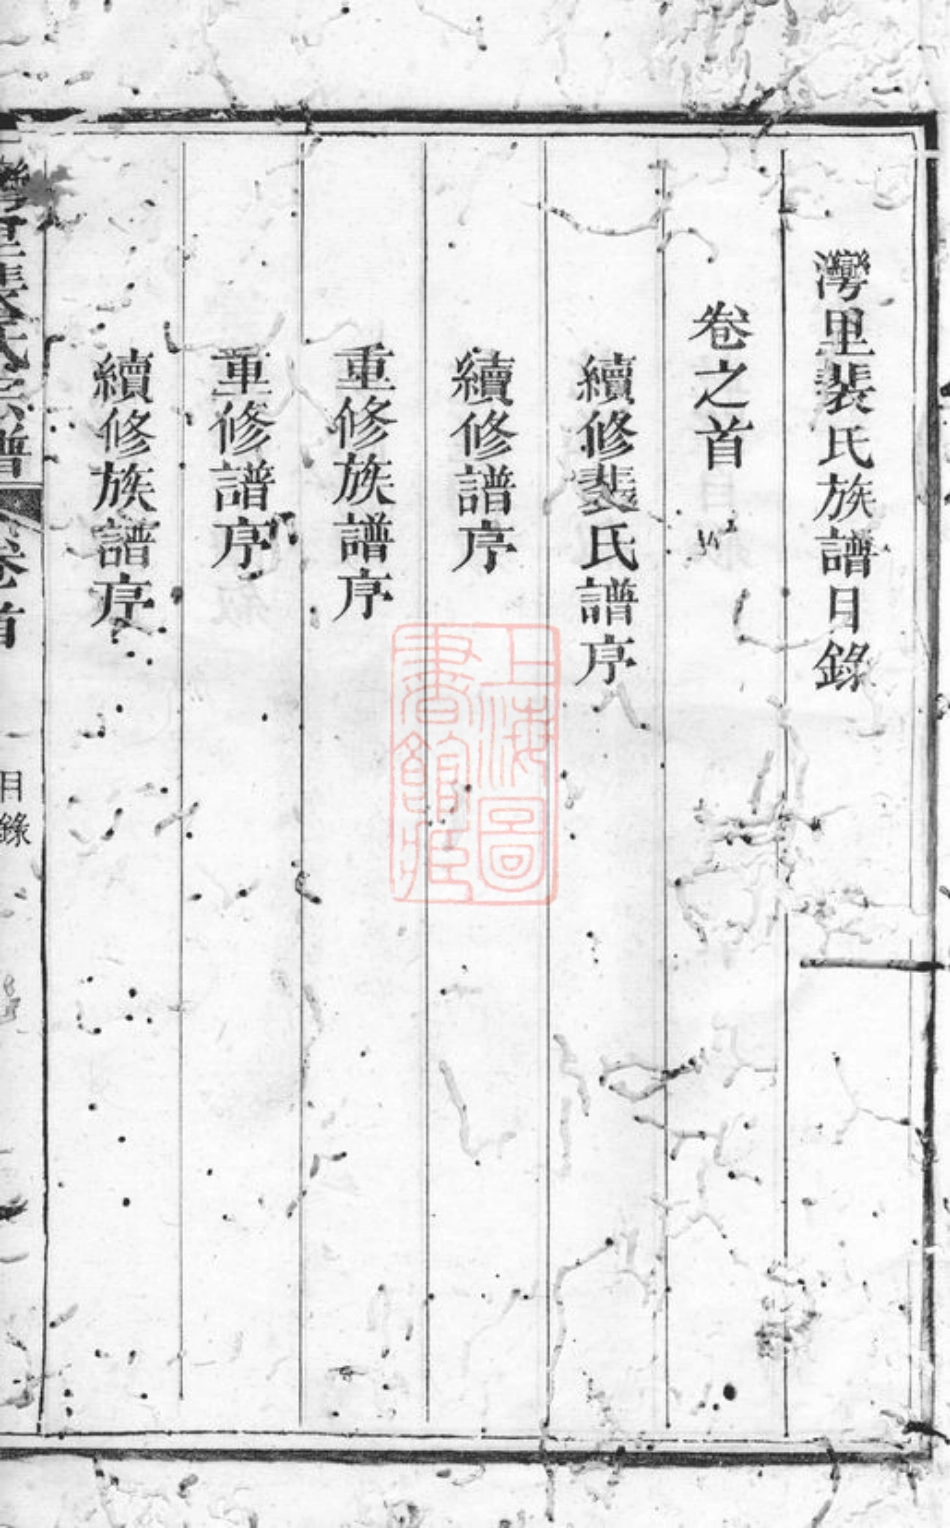 灣里裴氏族譜目錄
卷之首
續修裴氏譜序
續修譜序
重修族譜序
重修譜序
續修族譜序
灣里裴氏宗譜 卷首 一 目錄
上海圖書館藏